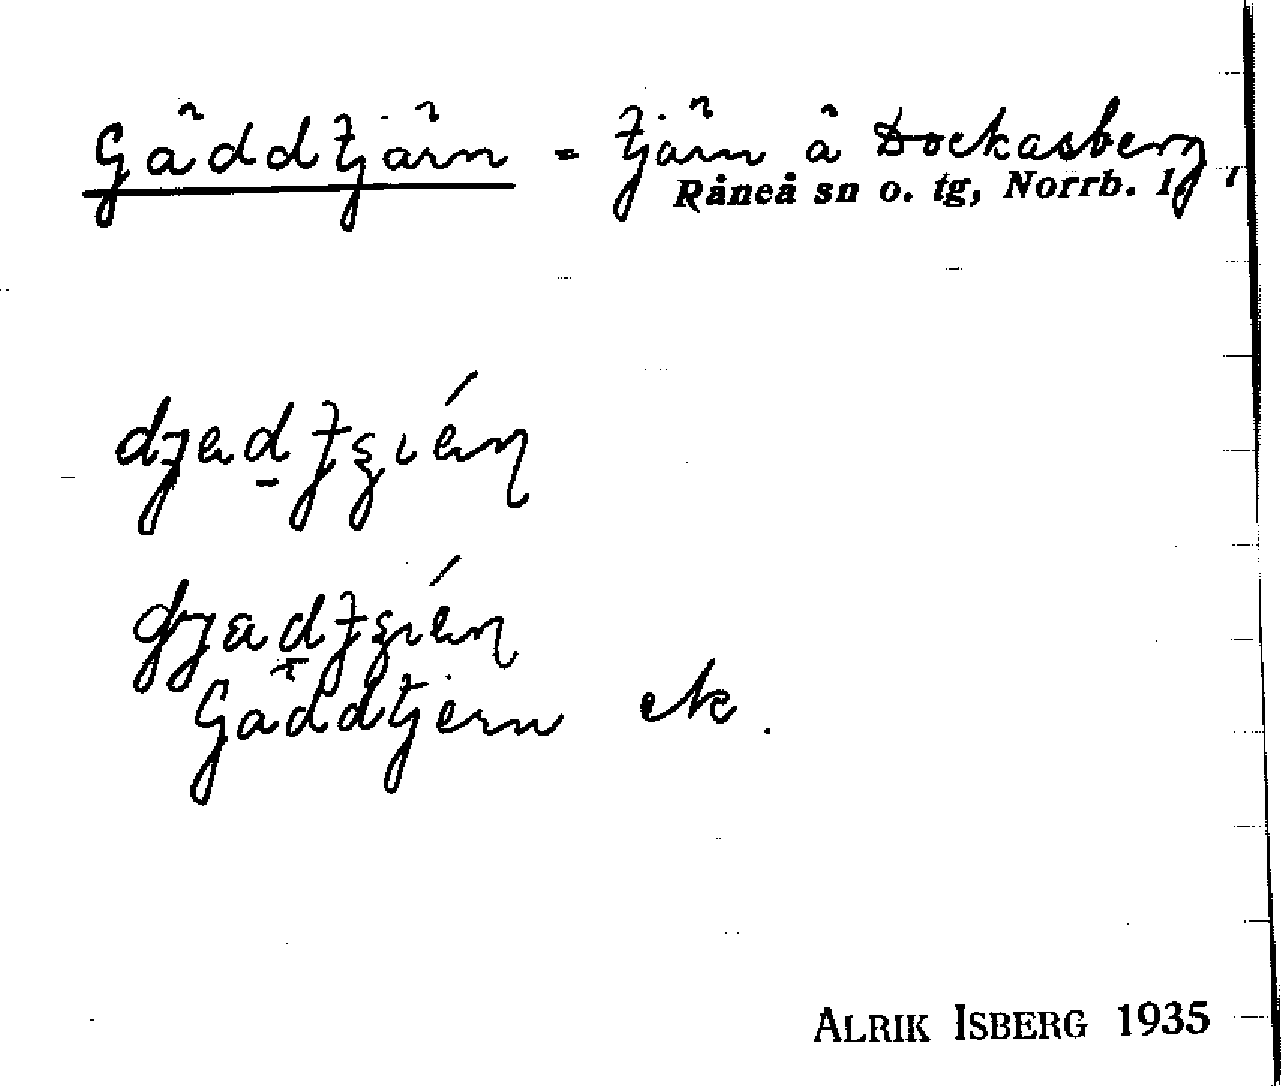 Gäddtjärn = tjärn å Dockasberg,
Råneå sn o. tg, Norrb. l
Gäddtjern ek.
ALRIK ISBERG 1935